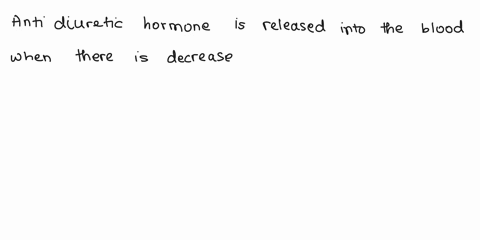 Anti diuretic hormone is released into the blood
when there is decrease